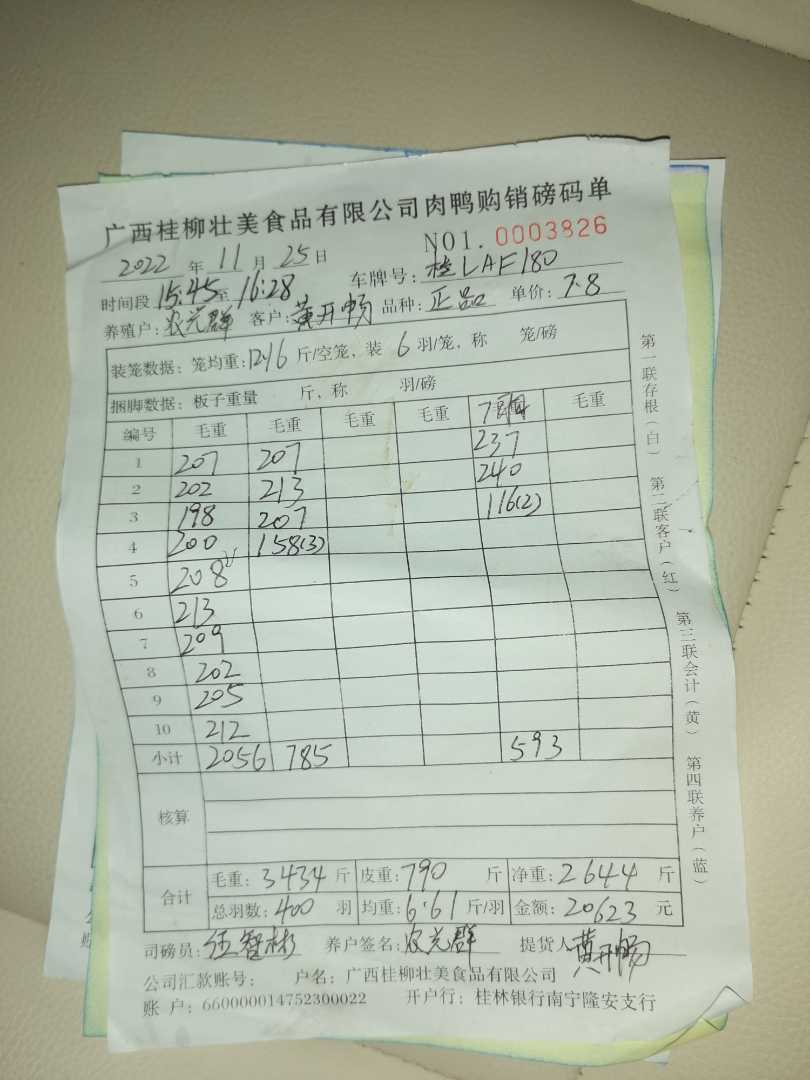 广西桂柳壮美食品有限公司肉鸭购销磅码单
2022 年 11 月 25 日 NO1. 0003826
时间段 15:45 至 16:28 车牌号: 桂LAF180
养殖户: 农光群 客户: 黄开畅 品种: 正品 单价: 7.8
装笼数据: 笼均重: 12.16 斤/空笼, 装 6 羽/笼, 称 笼/磅
捆脚数据: 板子重量 斤, 称 羽/磅
编号 毛重 毛重 毛重 毛重 7 毛重
1 207 207 237
2 202 213 240
3 198 207 116(2)
4 200 158(3)
5 208
6 213
7 209
8 202
9 205
10 212
小计 2056 785 593
核算
合计 毛重: 3434 斤 皮重: 790 斤 净重: 2644 斤
总羽数: 400 羽 均重: 6.61 斤/羽 金额: 20623 元
司磅员: 伍智彬 养户签名: 农光群 提货人 黄开畅
公司汇款账号: 户名: 广西桂柳壮美食品有限公司
账 户: 660000014752300022 开户行: 桂林银行南宁隆安支行
第一联存根(白) 第二联客户(红) 第三联会计(黄) 第四联养户(蓝)